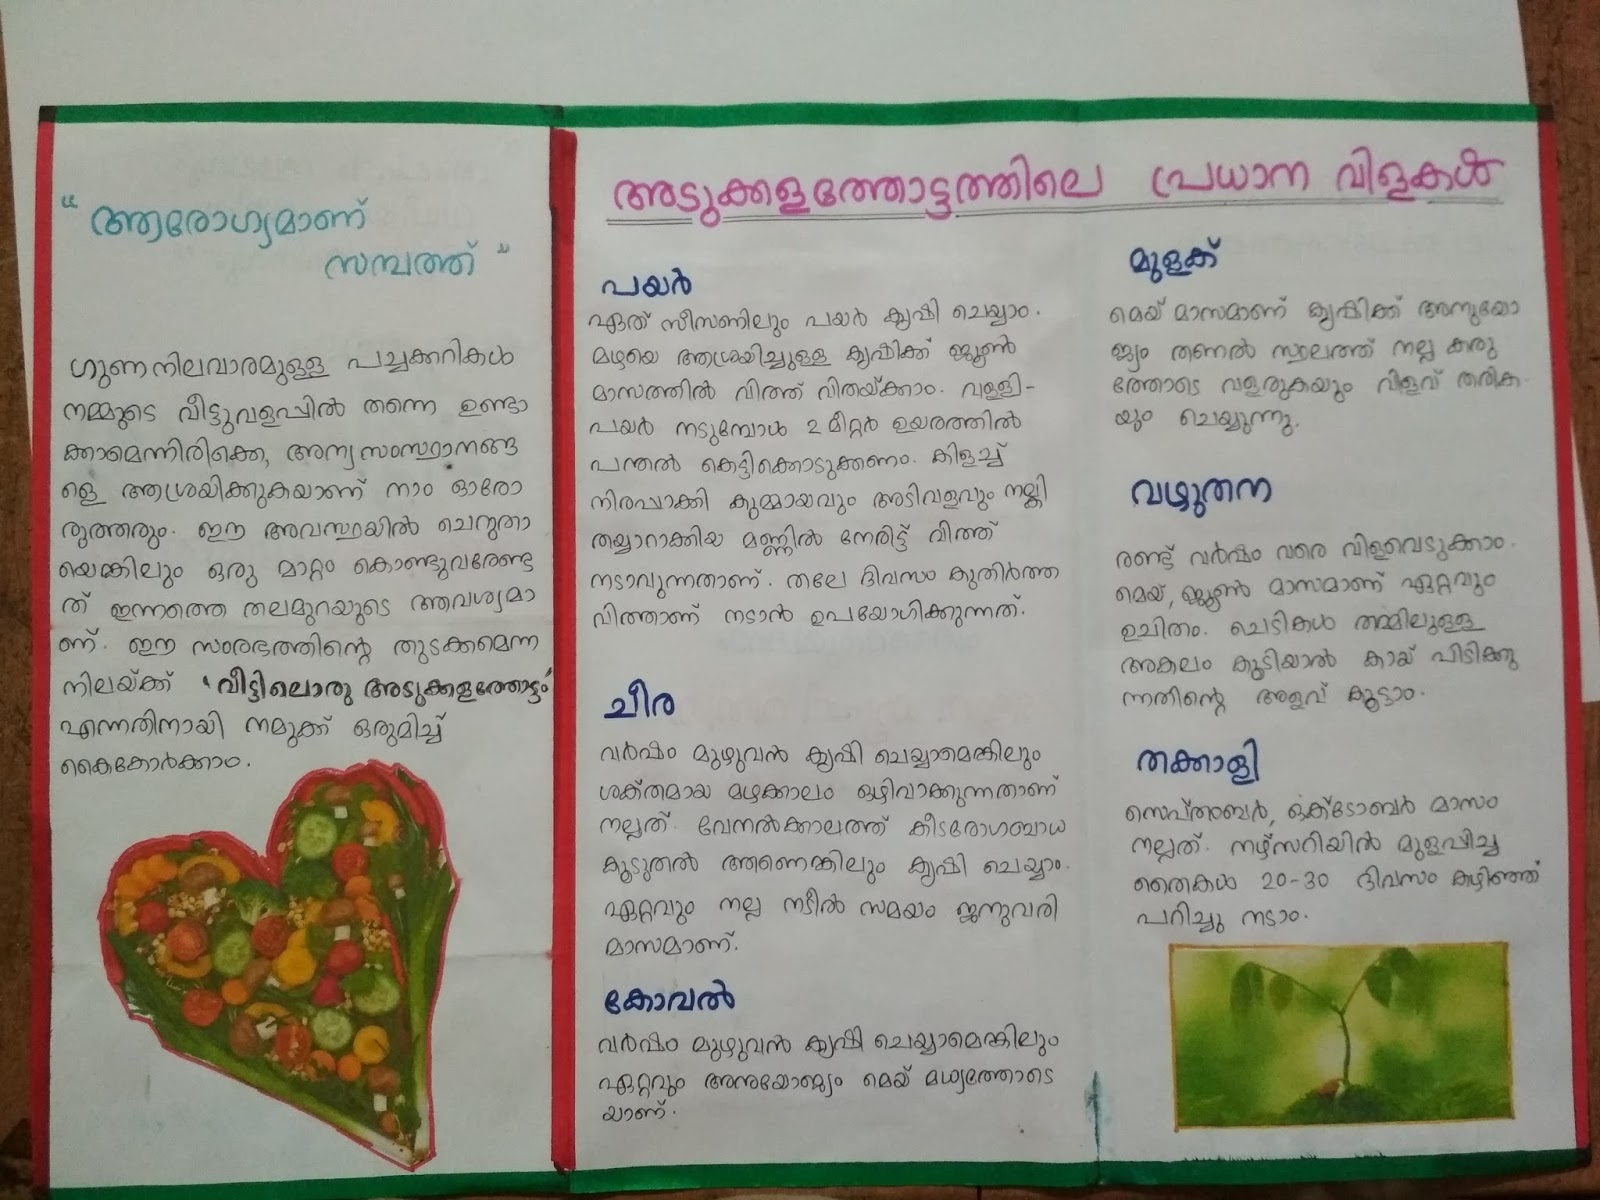 “ ആരോഗ്യമാണ്
സമ്പത്ത് ”
ഗുണനിലവാരമുള്ള പച്ചക്കറികൾ
നമ്മുടെ വീട്ടുവളപ്പിൽ തന്നെ ഉണ്ടാ
ക്കാമെന്നിരിക്കെ, അന്യസംസ്ഥാനങ്ങ
ളെ ആശ്രയിക്കുകയാണ് നാം ഓരോ
രുത്തരും. ഈ അവസ്ഥയിൽ ചെറുതാ
യെങ്കിലും ഒരു മാറ്റം കൊണ്ടുവരേണ്ട
ത് ഇന്നത്തെ തലമുറയുടെ ആവശ്യമാ
ണ്. ഈ സംരഭത്തിന്റെ തുടക്കമെന്ന
നിലയ്ക്ക് ‘വീട്ടിലൊരു അടുക്കളത്തോട്ടം’
എന്നതിനായി നമുക്ക് ഒരുമിച്ച്
കൈകോർക്കാം.
അടുക്കളത്തോട്ടത്തിലെ പ്രധാന വിളകൾ
പയർ
ഏത് സീസണിലും പയർ കൃഷി ചെയ്യാം.
മഴയെ ആശ്രയിച്ചുള്ള കൃഷിക്ക് ജൂൺ
മാസത്തിൽ വിത്ത് വിതയ്ക്കാം. വള്ളി-
പയർ നടുമ്പോൾ 2 മീറ്റർ ഉയരത്തിൽ
പന്തൽ കെട്ടിക്കൊടുക്കണം. കിളച്ച്
നിരപ്പാക്കി കുമ്മായവും അടിവളവും നല്കി
തയ്യാറാക്കിയ മണ്ണിൽ നേരിട്ട് വിത്ത്
നടാവുന്നതാണ്. തലേ ദിവസം കുതിർത്ത
വിത്താണ് നടാൻ ഉപയോഗിക്കുന്നത്.
ചീര
വർഷം മുഴുവൻ കൃഷി ചെയ്യാമെങ്കിലും
ശക്തമായ മഴക്കാലം ഒഴിവാക്കുന്നതാണ്
നല്ലത്. വേനൽക്കാലത്ത് കീടരോഗബാധ
കൂടുതൽ ആണെങ്കിലും കൃഷി ചെയ്യാം.
ഏറ്റവും നല്ല നടീൽ സമയം ജനുവരി
മാസമാണ്.
കോവൽ
വർഷം മുഴുവൻ കൃഷി ചെയ്യാമെങ്കിലും
ഏറ്റവും അനുയോജ്യം മെയ് മധ്യത്തോടെ
യാണ്.
മുളക്
മെയ് മാസമാണ് കൃഷിക്ക് അനുയോ
ജ്യം തണൽ സ്ഥലത്ത് നല്ല കരു
ത്തോടെ വളരുകയും വിളവ് തരിക-
യും ചെയ്യുന്നു.
വഴുതന
രണ്ട് വർഷം വരെ വിളവെടുക്കാം.
മെയ്, ജൂൺ മാസമാണ് ഏറ്റവും
ഉചിതം. ചെടികൾ തമ്മിലുള്ള
അകലം കൂടിയാൽ കായ് പിടിക്കു
ന്നതിന്റെ അളവ് കൂട്ടാം.
തക്കാളി
സെപ്തംബർ, ഒക്ടോബർ മാസം
നല്ലത്. നഴ്സറിയിൽ മുളപ്പിച്ച
തൈകൾ 20-30 ദിവസം കഴിഞ്ഞ്
പറിച്ചു നടാം.